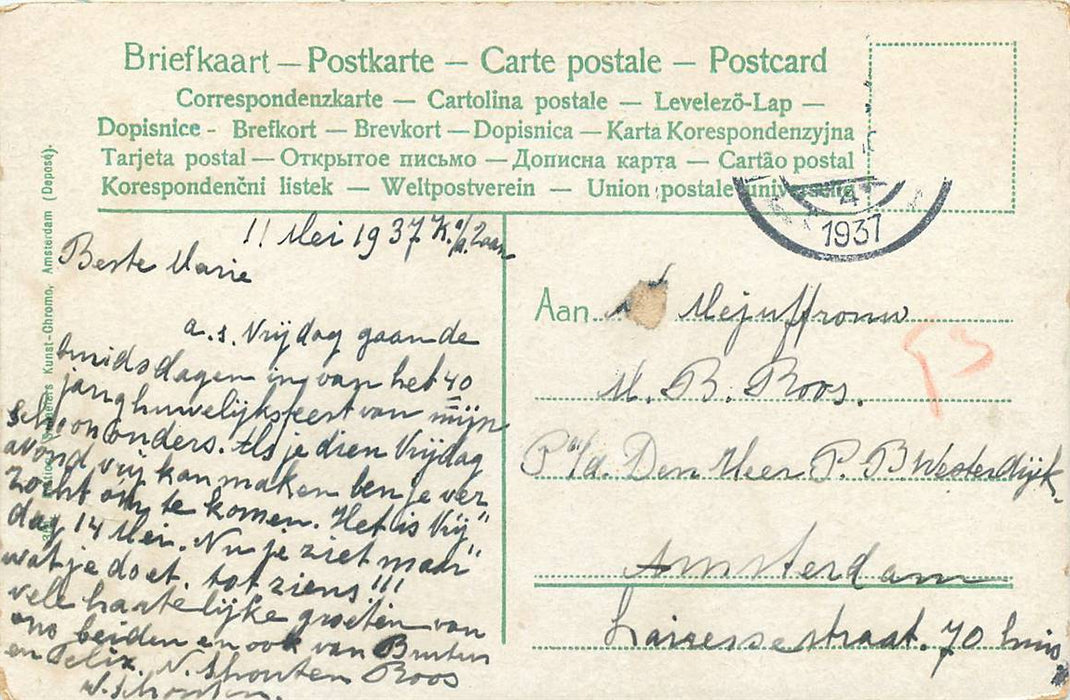 Briefkaart – Postkarte – Carte postale – Postcard
Correspondenzkarte — Cartolina postale — Levelezö-Lap —
Dopisnice - Brefkort — Brevkort — Dopisnica — Karta Korespondenzyjna
Tarjeta postal — Открытое письмо — Дописна карта — Cartão postal
Korespondenčni listek — Weltpostverein — Union postale universelle
1937
11 Mei 1937 K. a/d. Zaan
Beste Marie
a.s. Vrijdag gaan de
smids dagen in van het 40
jarig huwelijksfeest van mijn
schoonouders. Als je dien Vrijdag
avond vrij kan maken ben je ver
zocht om te komen. Het is Vrij"
dag 14 Mei. Nu je ziet maar"
wat je doet. tot ziens!!!
vele hartelijke groeten van
ons beiden en ook van Brutus
en Felix. N. Schouten Roos
W. Schouten.
Kunst-Chromo, Amsterdam (Deposé).
Aan Mejuffrouw
M. B. Roos.
P a/d. Den Heer P. B Westerdijk
Amsterdam
Lairessestraat. 70 huis